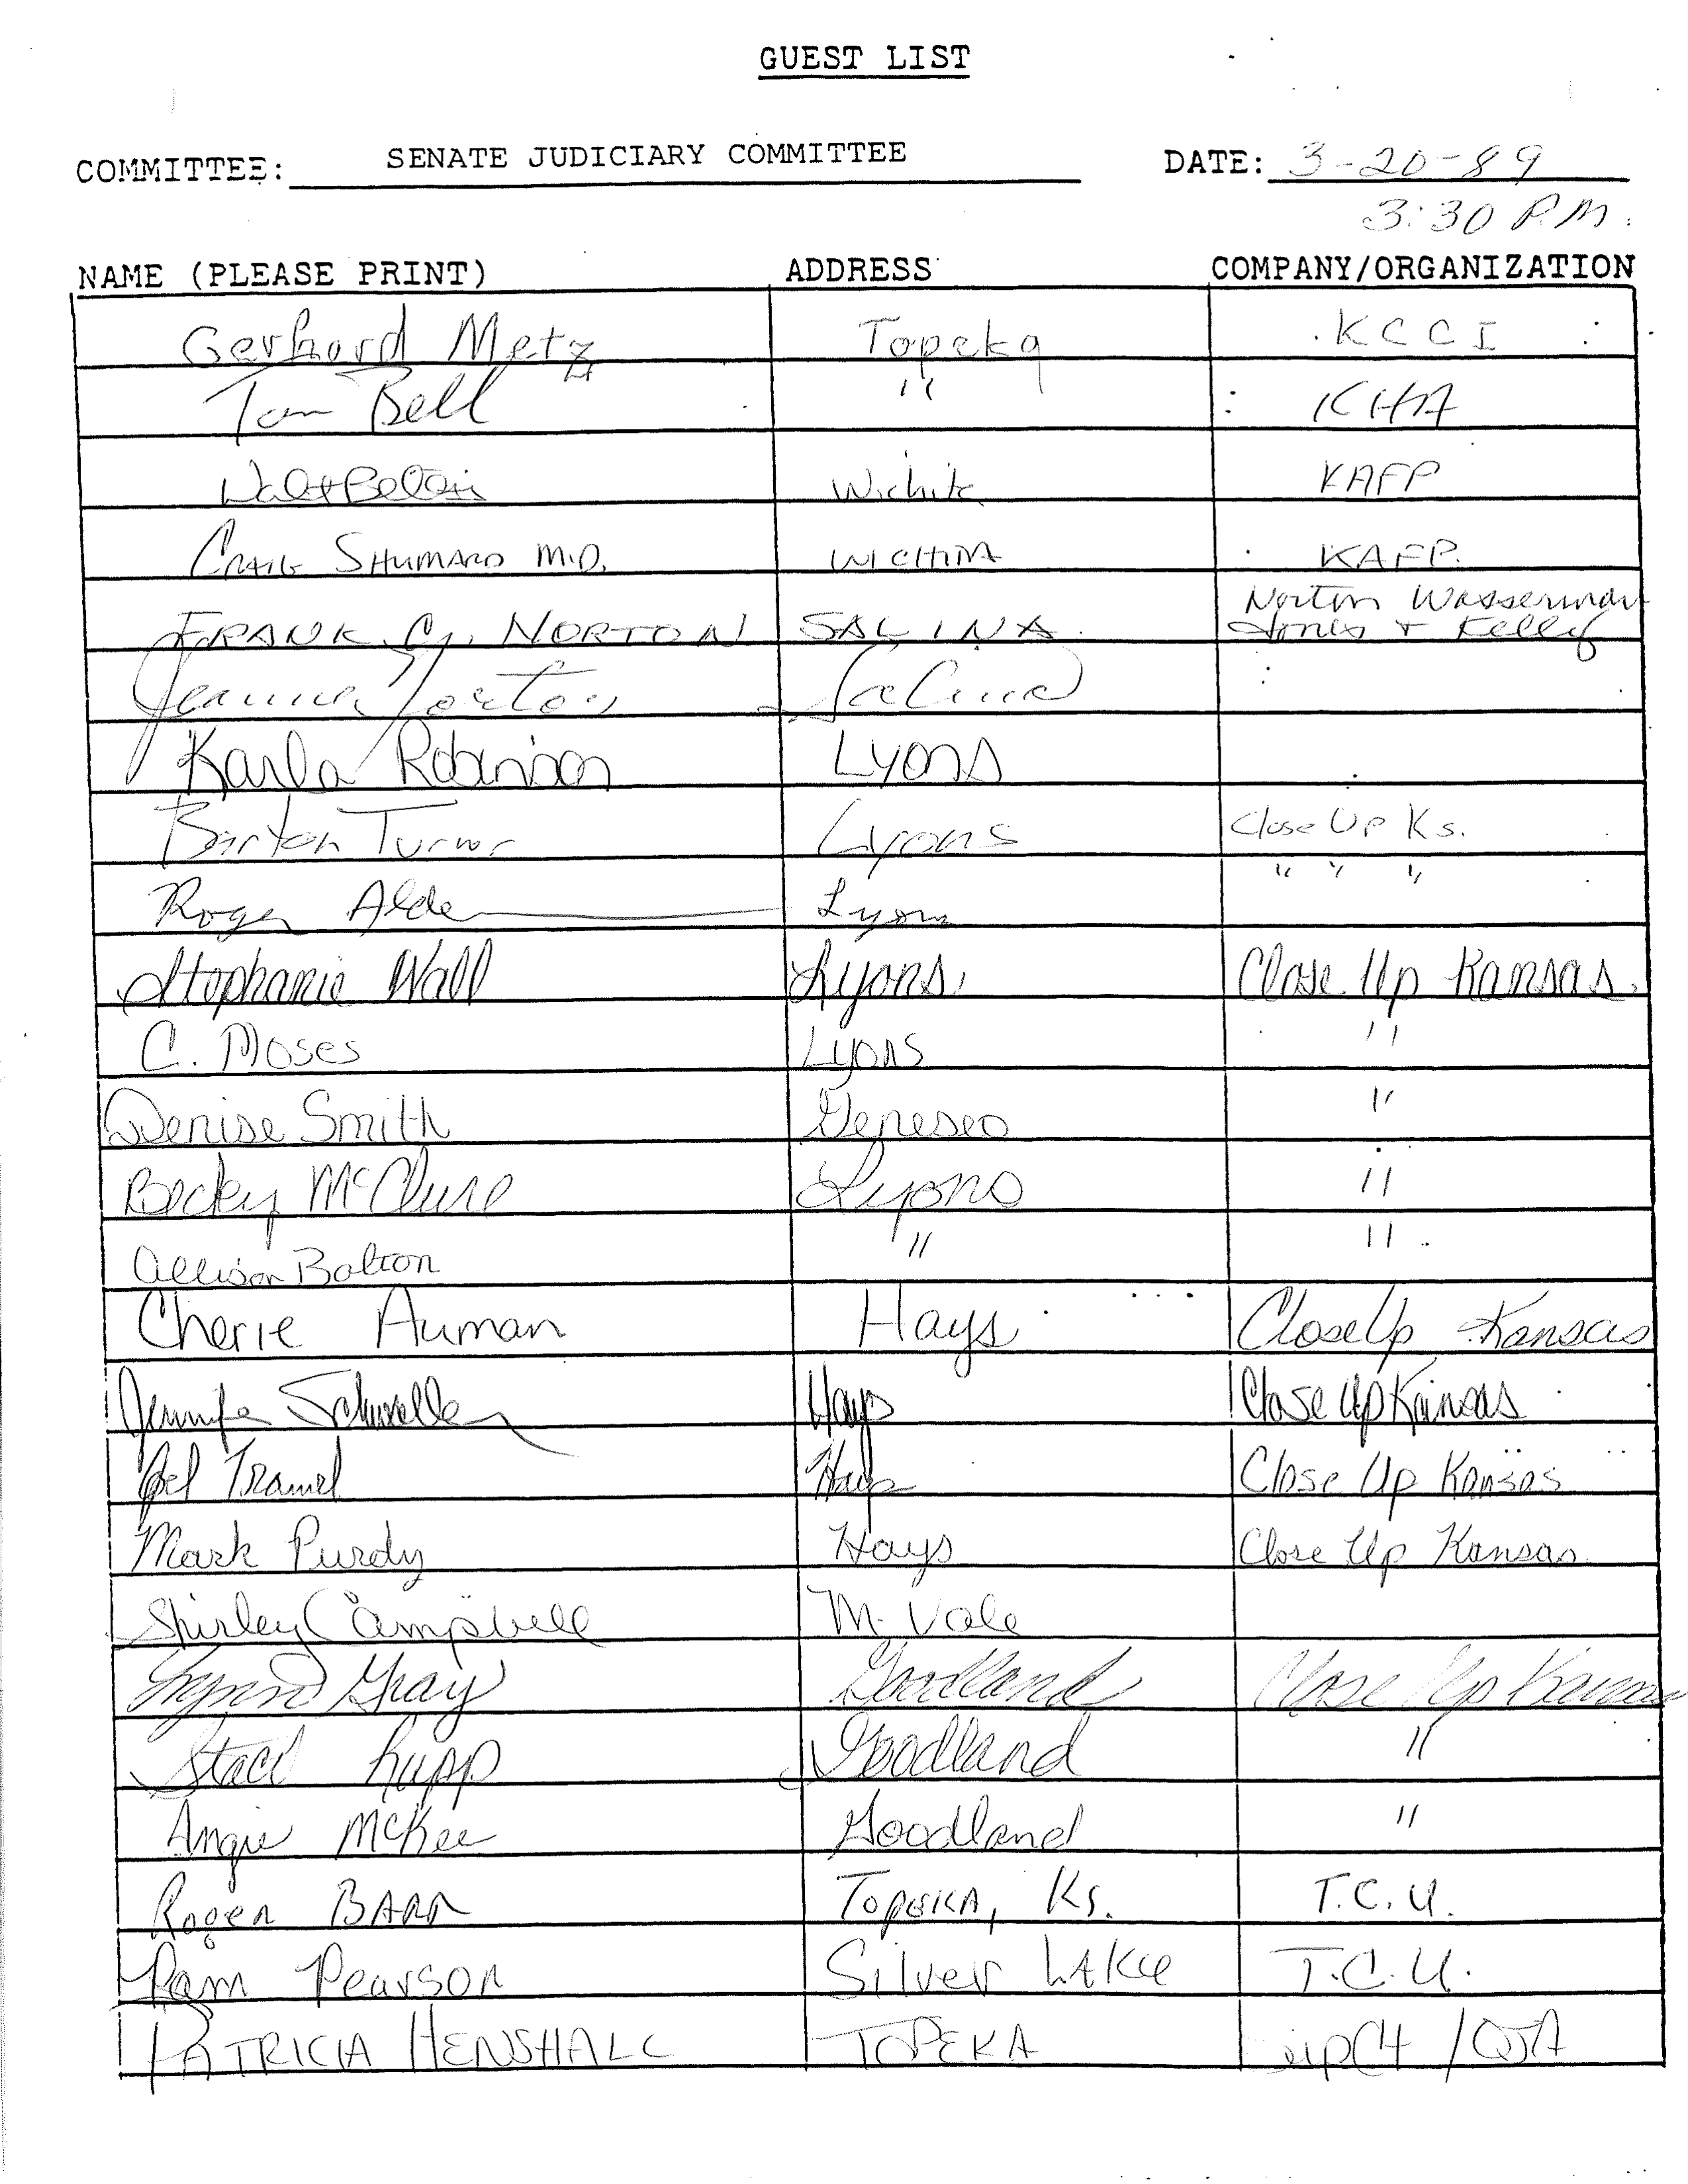 GUEST LIST
COMMITTEE: SENATE JUDICIARY COMMITTEE DATE: 3-20-89
3:30 P.M.
NAME (PLEASE PRINT) ADDRESS COMPANY/ORGANIZATION
Gerhard Metz Topeka KCCI
Tom Bell " KHA
Walt Wichita KAFP
CRAIG SHUMARD M.D. WICHITA KAFP.
Norton Wasserman
FRANK C. NORTON SALINA Jones + Kelly
Norton Salina
Karla Robinson Lyons
Barton Turner Lyons Close Up Ks.
Roger Alde Lyons " " "
Stephanie Wall Lyons, Close Up Kansas.
C. Moses Lyons "
Denise Smith Geneseo "
Becky McClure Lyons "
Allison Bolton " "
Cherie Auman Hays Close Up Kansas
Jennifer Hays Close Up Kansas
Joel Tramel Hays Close Up Kansas
Mark Purdy Hays Close Up Kansas
Shirley Campbell M. Vale
Lynn Gray Goodland Close Up Kansas
Staci Rupp Goodland "
Angie McKee Goodland "
Roger BARR TOPEKA, Ks. T.C.U.
Pam Pearson Silver LAKe T.C.U.
PATRICIA HENSHALL TOPEKA /OJA